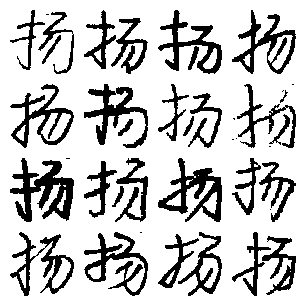 扬扬扬扬
扬扬扬扬
扬扬扬扬
扬扬扬扬